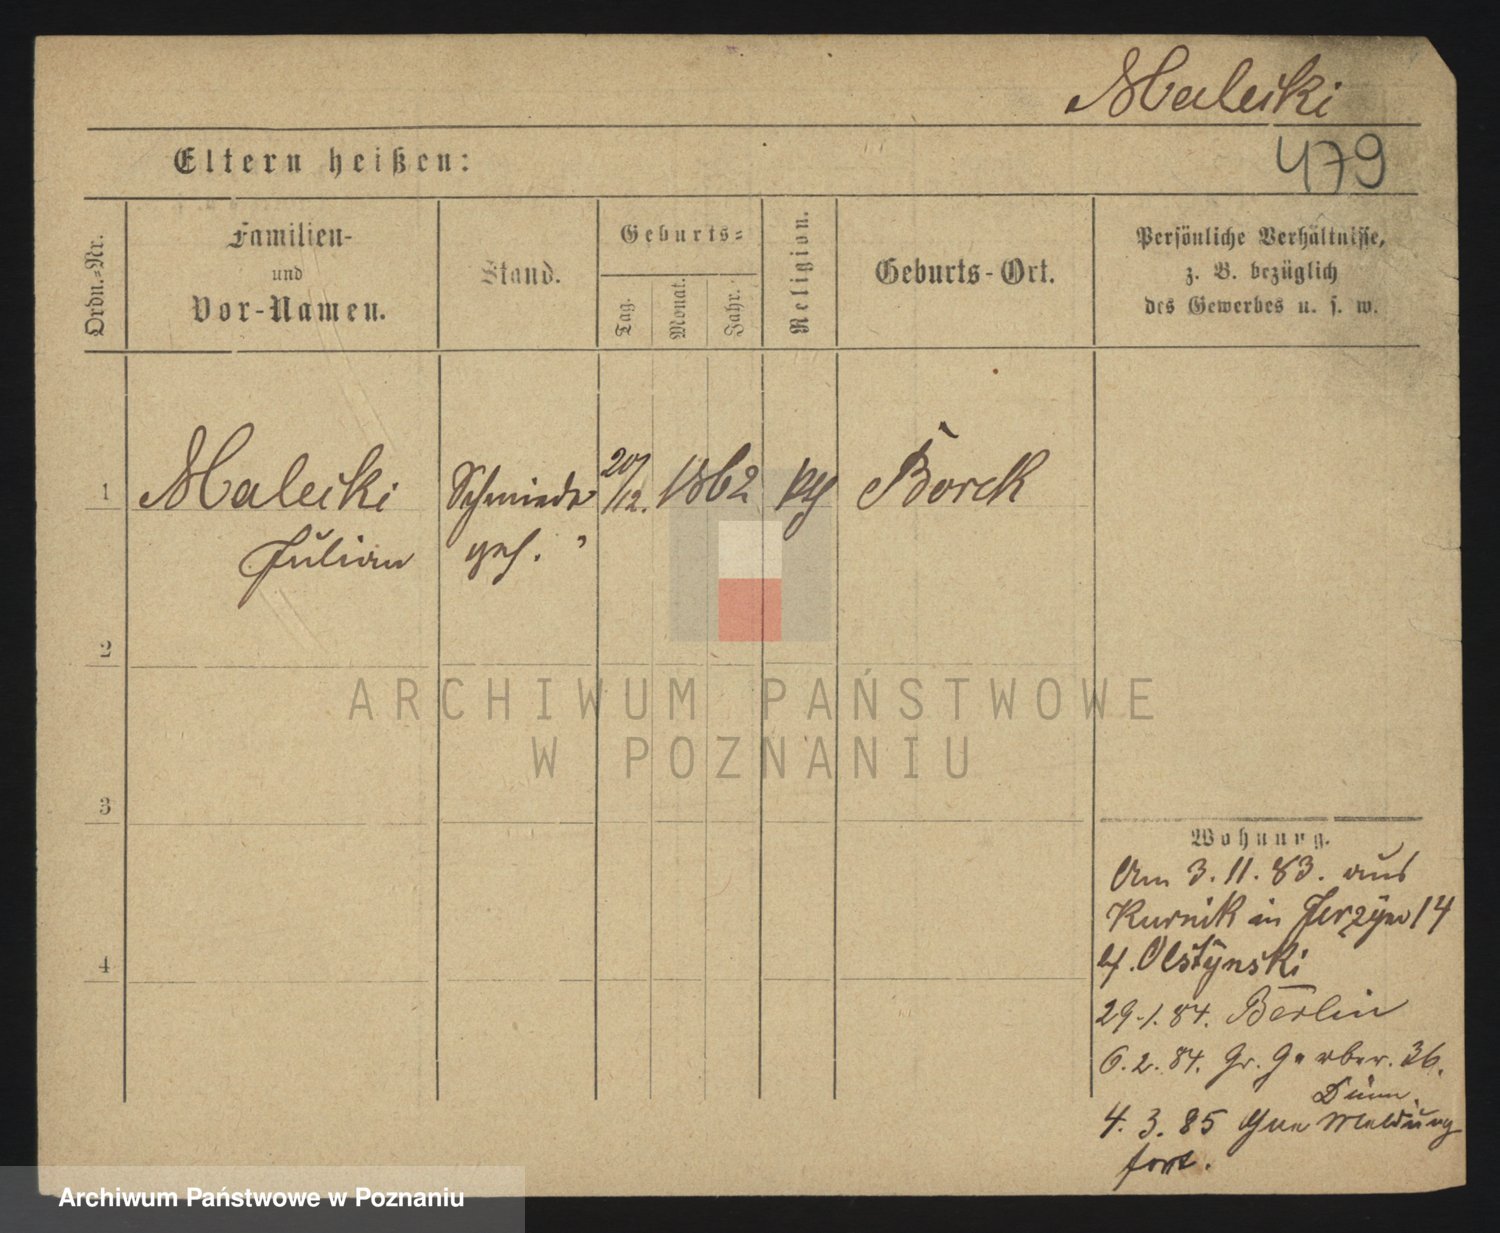 Maleiki
479
Eltern heißen:
Ordn.-Nr.
Familien-
und
Vor-Namen.
Stand.
Geburts-
Tag.
Monat.
Jahr.
Religion.
Geburts-Ort.
Persönliche Verhältnisse,
z. B. bezüglich
des Gewerbes u. s. w.
1 Maleiki Schmiede 20/12. 1862 Borek
Julian ges.
2
ARCHIWUM PAŃSTWOWE
W POZNANIU
3
Wohnung.
Am 3.11.83. aus
Kurnik in 14
Olstynski
4
29.1.84. Berlin
6.2.84. Gr. Gerber. 36.
4.3.85 Meldung
fort.
Archiwum Państwowe w Poznaniu